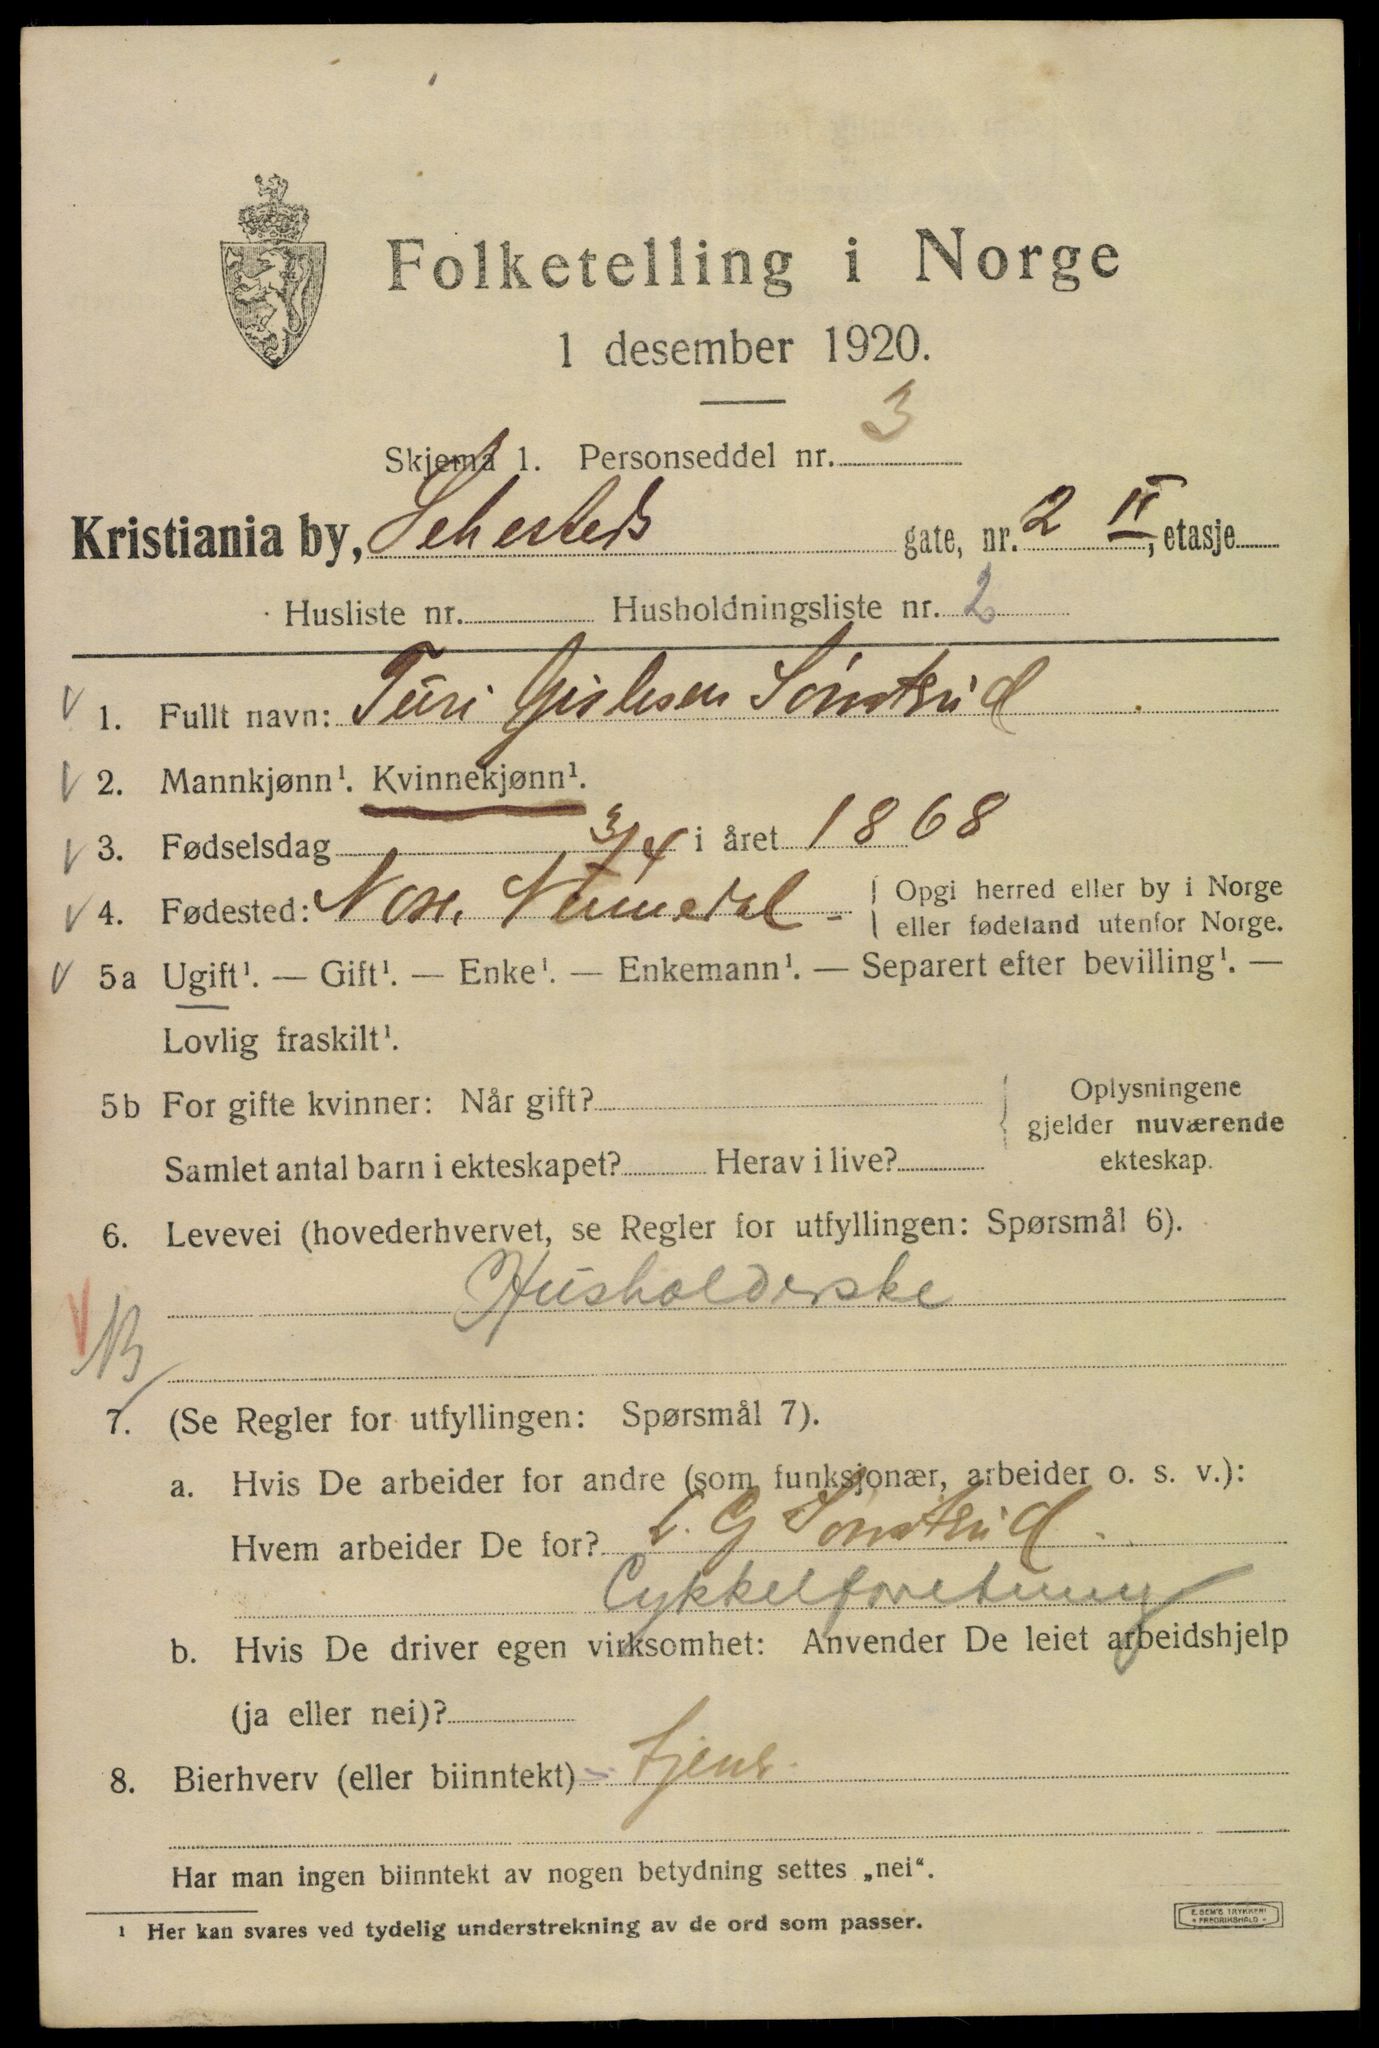 Folketelling i Norge
1 desember 1920.
Skjema 1. Personseddel nr. 3
Kristiania by, Sehesteds gate, nr. 2 II, etasje
Husliste nr. Husholdningsliste nr. 2
1. Fullt navn: Turi Gislesen Sönsterud
2. Mannkjønn¹. Kvinnekjønn¹.
3. Fødselsdag 3/4 i året 1868
4. Fødested: Nore, Numedal - Opgi herred eller by i Norge
eller fødeland utenfor Norge.
5a Ugift¹. — Gift¹. — Enke¹. — Enkemann¹. — Separert efter bevilling¹. —
Lovlig fraskilt¹.
5b For gifte kvinner: Når gift? Oplysningene
gjelder nuværende
Samlet antal barn i ekteskapet? Herav i live? ekteskap.
6. Levevei (hovederhvervet, se Regler for utfyllingen: Spørsmål 6).
Husholderske
7. (Se Regler for utfyllingen: Spørsmål 7).
a. Hvis De arbeider for andre (som funksjonær, arbeider o. s. v.):
Hvem arbeider De for? L. G Sönsterud.
Cykkelforetning
b. Hvis De driver egen virksomhet: Anvender De leiet arbeidshjelp
(ja eller nei)?
8. Bierhverv (eller biinntekt) - tjener
Har man ingen biinntekt av nogen betydning settes „nei“.
¹ Her kan svares ved tydelig understrekning av de ord som passer.
E. SEM'S TRYKKERI
• FREDRIKSHALD •